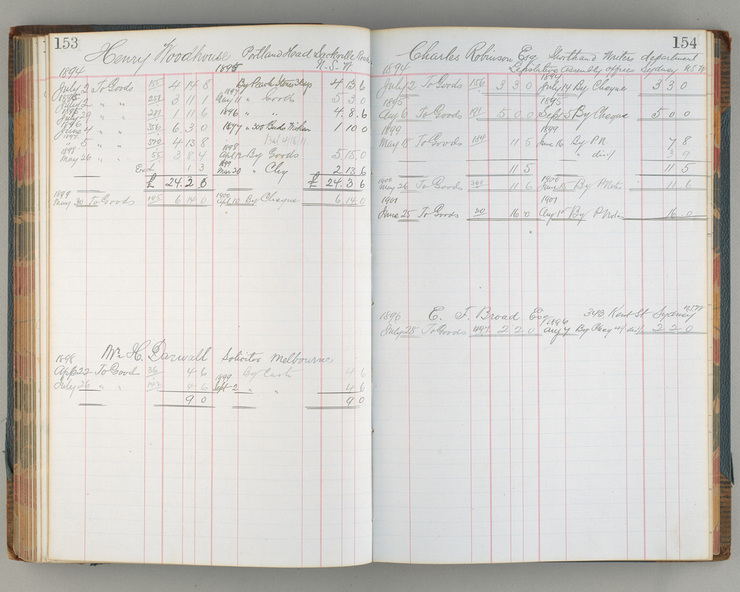 153
Henry Woodhouse Portland Head Sackville Reach
N.S.W.
1894
July 2 To Goods 155 4 14 8 4 13 6
" " 3 11 1 May 11 " Goods 5 3 0
" " 1 11 6 1896 " " 4 8 6
1896
June 4 " " 6 3 0 1897 1 10 0
" 5 " " 4 13 8
1898 1898
May 26 " " 55 3 8 4 By Goods 5 15 0
1 3 " Chq 2 13 6
£ 24 2 6 £ 24 3 6
1899 1900
May 30 To Goods 105 6 14 0 Sept 10 By Cheque 6 14 0
Mr H. Darvall Solicitor Melbourne
1898
April 22 To Goods 4 6 By Cash 4 6
July 26 " " 4 6 Sept 2 " " 4 6
9 0 9 0
154
Charles Robinson Esq Shorthand Writers department
Legislative Assembly offices Sydney N.S.W
1894 1894
July 2 To Goods 156 3 3 0 July 14 By Cheque 3 3 0
1895 1895
Aug 6 To Goods 5 0 0 Sept 5 By Cheque 5 0 0
1899 1899
May 18 To Goods 11 5 June 16 By P.N 7 8
" "
11 5 11 5
1900 1900
May 26 To Goods 11 6 June 15 By P Note 11 6
1901 1901
June 25 To Goods 20 16 0 Aug 1st By P Note 16 0
1896 E. J. Broad Esq 343 Kent St Sydney
July 28 To Goods 2 2 0 Aug 7 By Cheq 2 2 0